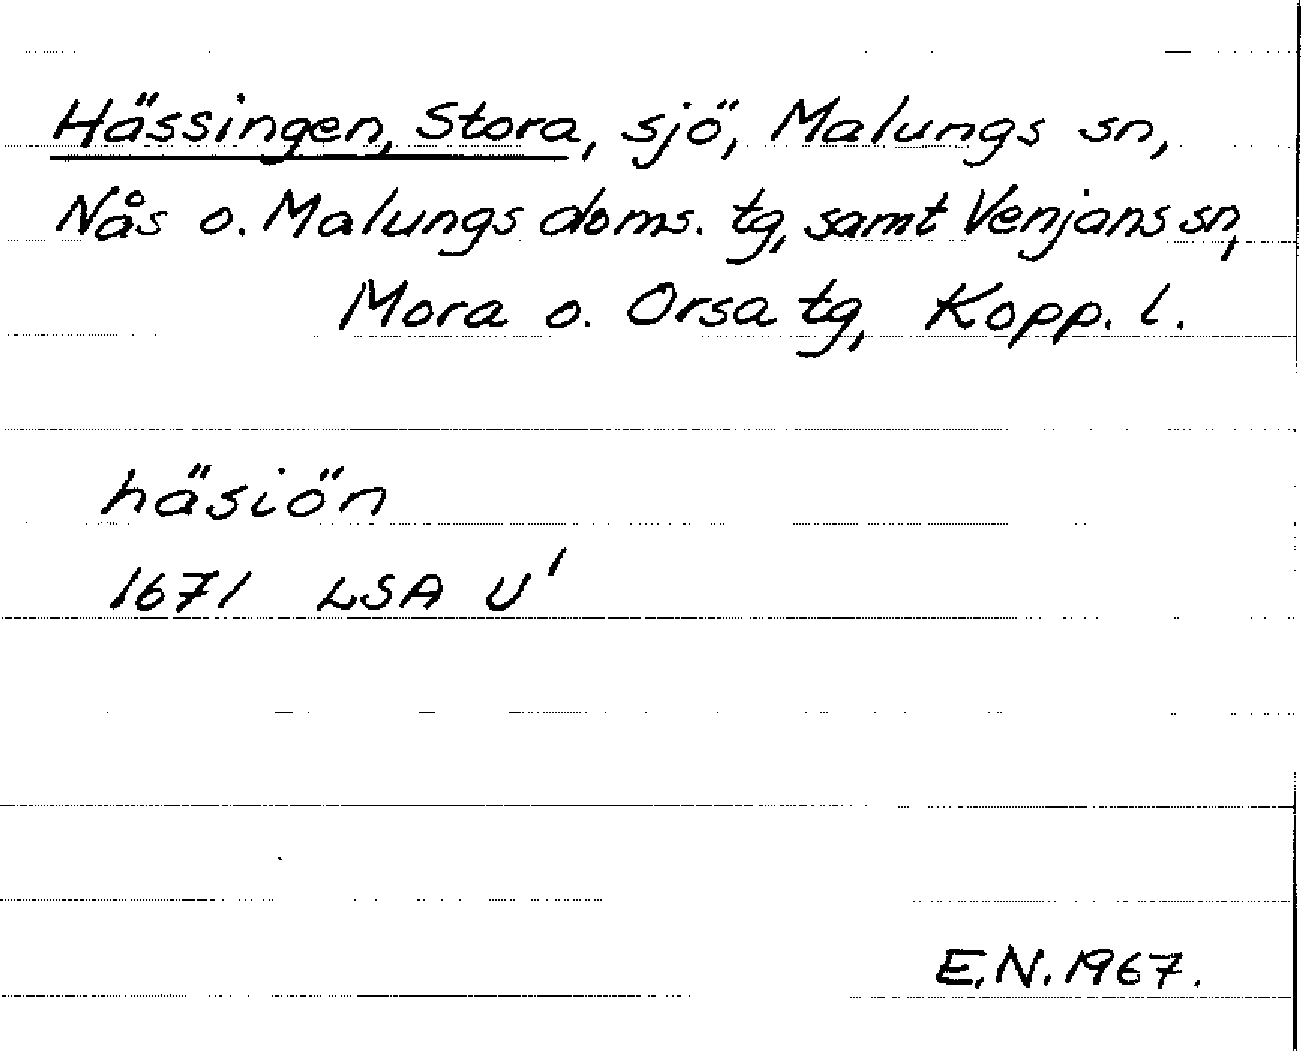 Hässingen, Stora, sjö, Malungs sn,
Nås o. Malungs doms. tg, samt Venjans sn,
Mora o. Orsa tg, Kopp. l.
häsiön
1671 LSA U¹
E.N. 1967.